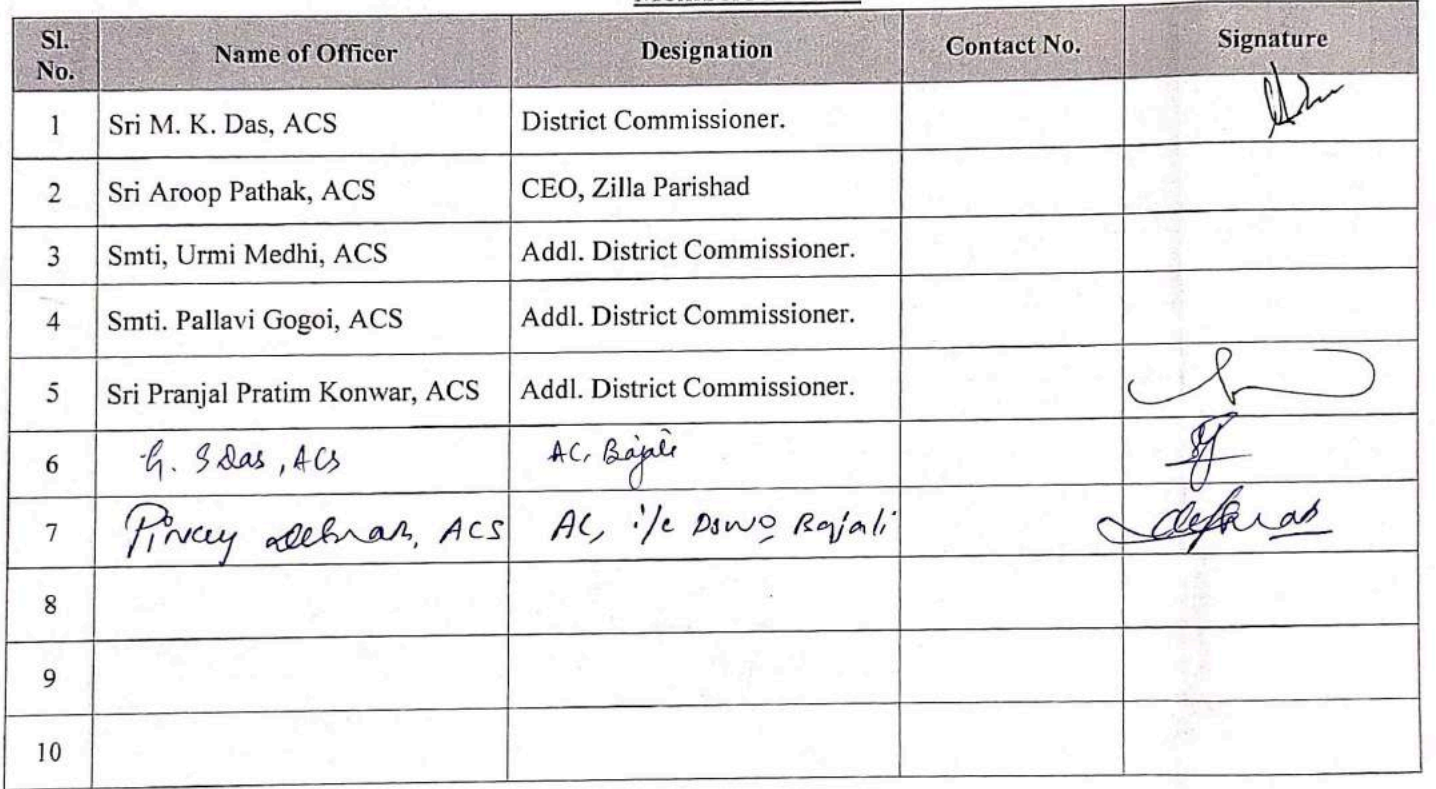 Sl. No. Name of Officer Designation Contact No. Signature
1 Sri M. K. Das, ACS District Commissioner.
2 Sri Aroop Pathak, ACS CEO, Zilla Parishad
3 Smti, Urmi Medhi, ACS Addl. District Commissioner.
4 Smti. Pallavi Gogoi, ACS Addl. District Commissioner.
5 Sri Pranjal Pratim Konwar, ACS Addl. District Commissioner.
6 G. S Das, ACS AC, Bajali
7 ACS AC, i/c DSWO Bajali
8
9
10